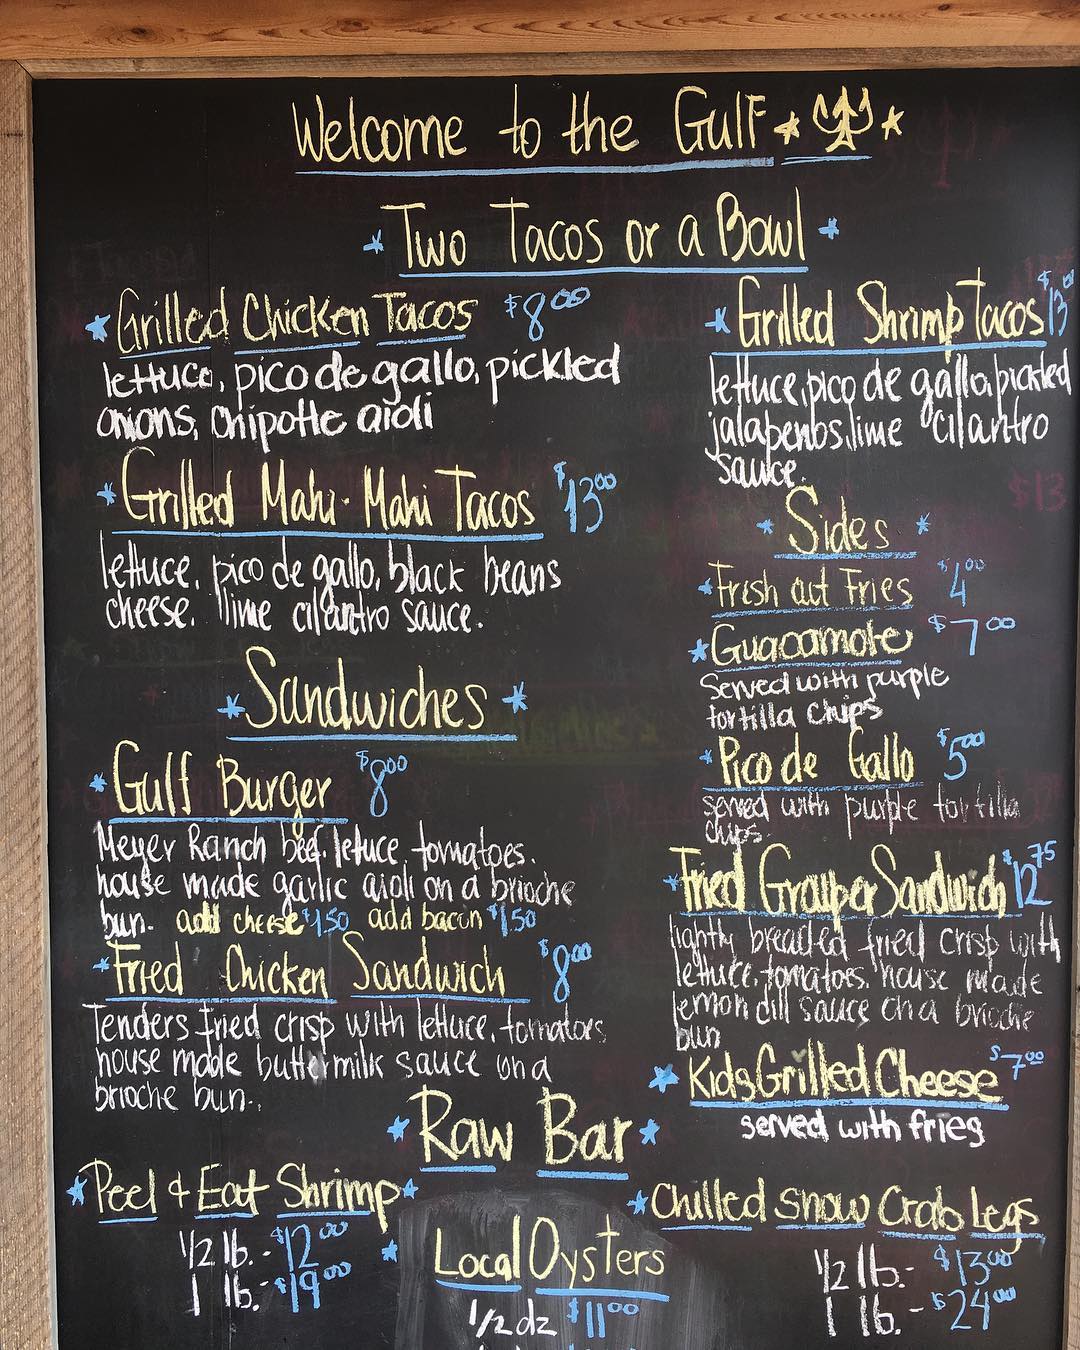 Welcome to the Gulf
Two Tacos or a Bowl
Grilled Chicken Tacos $8.00
lettuce, pico de gallo, pickled
onions, chipotle aioli
Grilled Mahi-Mahi Tacos $13.00
lettuce, pico de gallo, black beans
cheese, lime cilantro sauce.
Sandwiches
Gulf Burger $8.00
Meyer Ranch beef, lettuce, tomatoes,
house made garlic aioli on a brioche
bun. add cheese $1.50 add bacon $1.50
Fried Chicken Sandwich $8.00
Tenders fried crisp with lettuce, tomatoes
house made buttermilk sauce on a
brioche bun.
Grilled Shrimp Tacos $13.00
lettuce, pico de gallo, pickled
jalapenos, lime cilantro
sauce.
Sides
Fresh cut Fries $4.00
Guacamole $7.00
Served with purple
tortilla chips
Pico de Gallo $5.00
served with purple tortilla
chips.
Fried Grouper Sandwich $12.75
lightly breaded fried crisp with
lettuce, tomatoes, house made
lemon dill sauce on a brioche
bun
Kids Grilled Cheese $7.00
served with fries
Raw Bar
Peel & Eat Shrimp
1/2 lb. - $12.00
1 lb. - $19.00
Local Oysters
1/2 dz $11.00
Chilled Snow Crab Legs
1/2 lb. - $13.00
1 lb. - $24.00